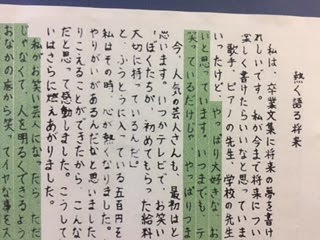 熱く語る将来
私は、卒業文集に将来の夢を書け
れしいです。私が今まで将来につい
楽しく書けたらいいなと思います
歌手、ピアノの先生、学校の先生
いったけど、やっぱり大好きなお
いと思っています。いつまでも、テ
笑っているだけじゃ、やっぱりつま
今、人気の芸人さんも、最初はと
思います。いつかテレビで、お笑い
「ぼくたちが、初めてもらった給料
と、ふうとうに入っている五百円を
大切に持っているんだ。」
私はその時、心が熱くなりました。
やりがいがあるんだなと思いました
りこえることができたから、こんな
だと思って感動しました。こうして
いはさらに燃えあがりました。
私がお笑い芸人になったら、ただ
じゃなくて、人を明るくできるよう
おなかの底から笑って、イヤな事をス